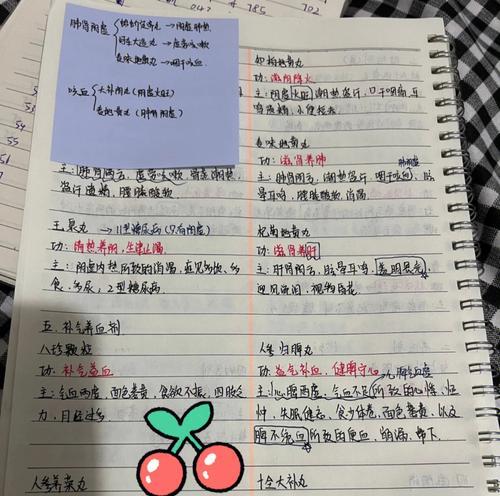 肺肾阴虚
→阴虚肺热
→虚劳咳嗽
麦味地黄丸→咽干咳血
咳血
大补阴丸(阴虚火旺)
麦味地黄丸(肺肾阴虚)
主:肺肾两亏,虚劳咳嗽,骨蒸潮热,
盗汗遗精,腰膝酸软
玉泉丸→II型糖尿病(只有阴虚)
功:清热养阴,生津止渴
主:阴虚内热所致的消渴,症见多饮、多
食、多尿;2型糖尿病
五、补气养血剂
八珍颗粒
功:补气益血
主:气血两虚,面色萎黄,食欲不振,四肢乏
力,月经过多
人参养荣丸
知柏地黄丸
功:滋阴降火
主:阴虚火旺,潮热盗汗,口干咽痛,耳
鸣遗精,小便短赤
麦味地黄丸
功:滋肾养肺
肺肾阴虚
主:肺肾阴亏,潮热盗汗,咽干咳血,眩
晕耳鸣,腰膝酸软,消渴
杞菊地黄丸
功:滋肾养肝
主:肝肾阴亏,眩晕耳鸣,羞明畏光,
迎风流泪,视物昏花
人参归脾丸
功:益气补血,健脾宁心
主:心脾两虚、气血不足所致的心悸、怔
忡,失眠健忘,食少体倦,面色萎黄,以及
脾不统血所致的便血、崩漏、带下
十全大补丸